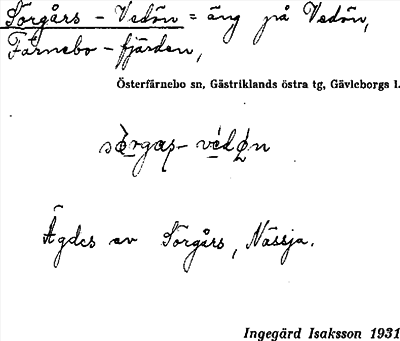 Sörgårs - Vedön = äng på Vedön,
Färnebo - fjärden,
Österfärnebo sn, Gästriklands östra tg, Gävleborgs l.
Ägdes av Sörgårs, Nässja.
Ingegärd Isaksson 1931